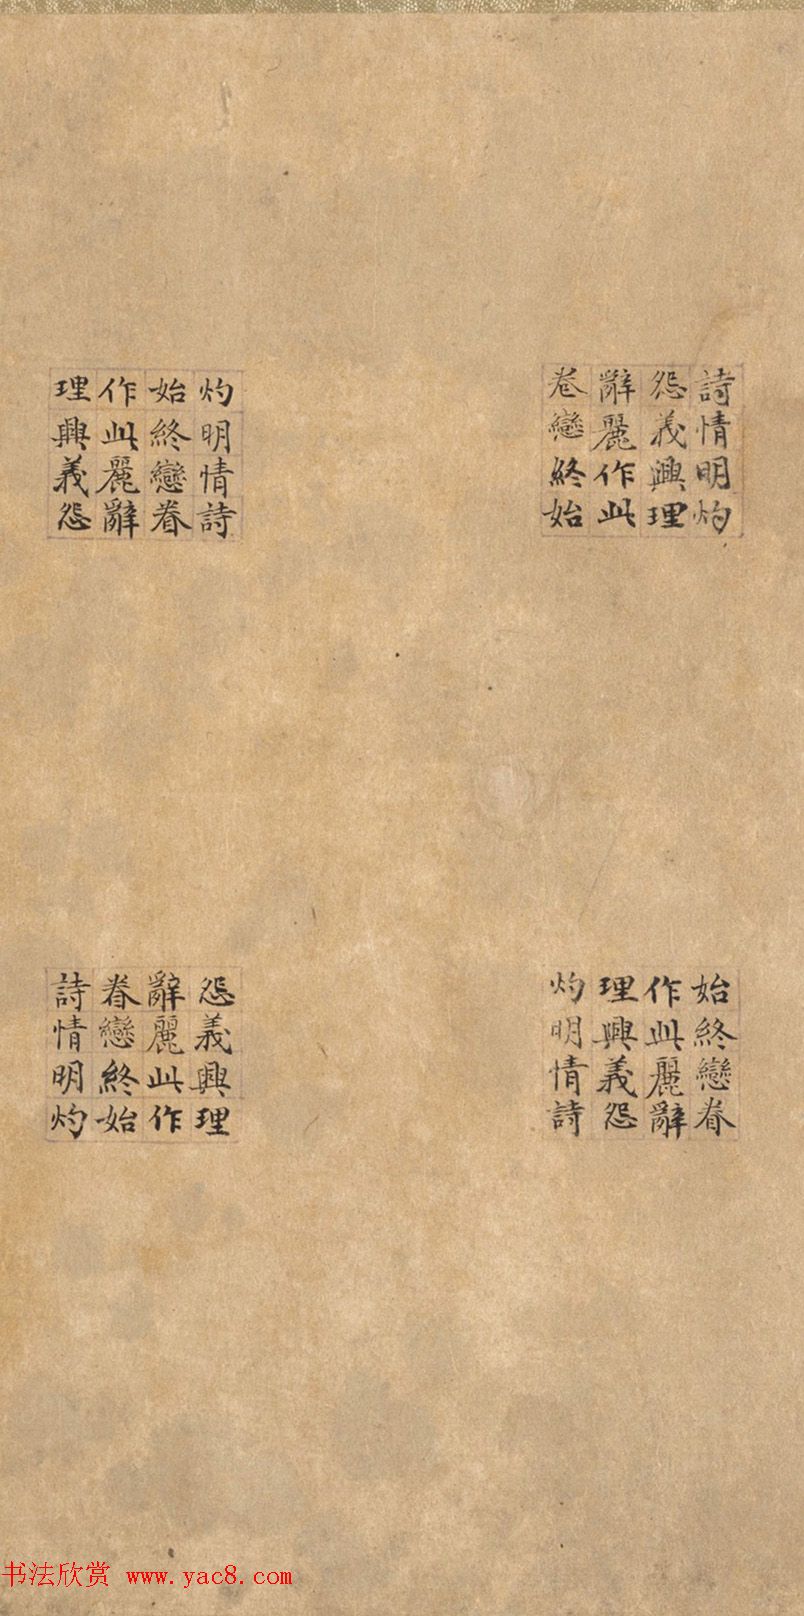 詩情明灼
怨義興理
辭麗作此
卷戀終始
灼明情詩
始終戀眷
作此麗辭
理興義怨
始終戀眷
作此麗辭
理興義怨
灼明情詩
怨義興理
辭麗此作
眷戀終始
詩情明灼
书法欣赏 www.yac8.com